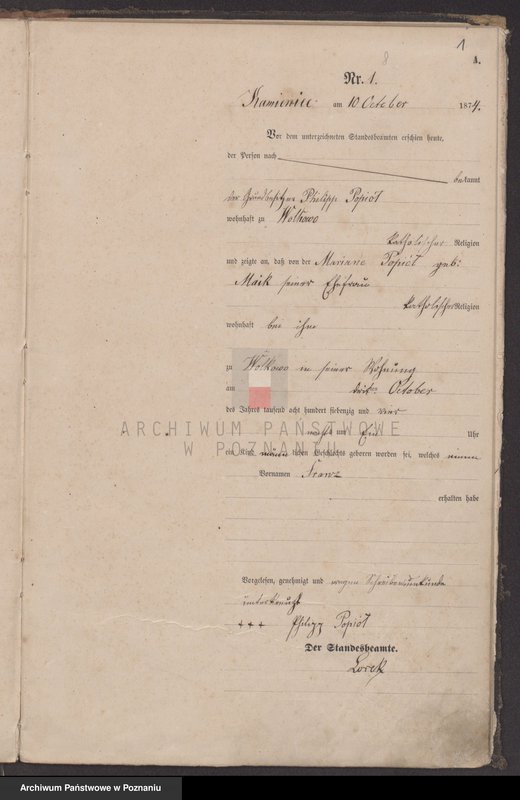 1
8
A.
Nr. 1.
Kamieniec am 10 October 1874.
Vor dem unterzeichneten Standesbeamten erschien heute,
der Person nach
bekannt
der Grundbesitzer Philipp Popiòl
wohnhaft zu Wolkowo
katholischer Religion
und zeigte an, daß von der Mariane Popiòl geb:
Maik seiner Ehefrau
katholischer Religion
wohnhaft bei ihm
zu Wolkowo in seiner Wohnung
am October
des Jahres tausend acht hundert siebenzig und vier
nachts um Ein Uhr
ein Kind männlichen Geschlechts geboren worden sei, welches einen
Vornamen Franz
erhalten habe
Vorgelesen, genehmigt und wegen Schreibensunkunde
unterkreuzt
+++ Philipp Popiòl
Der Standesbeamte.
Lorek
ARCHIWUM PAŃSTWOWE
W POZNANIU
Archiwum Państwowe w Poznaniu